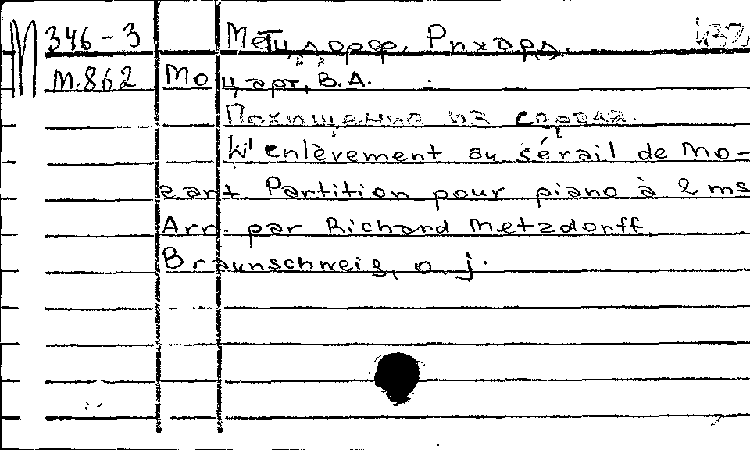 М 346-3 Метцдорф, Рихард.
М.862 Моцарт, В.А.
Похищение из сераля.
L'enlèvement au sérail de Mo-
zart Partition pour piano à 2 ms
Arr. par Richard Metzdorff.
Braunschweig, o. j.